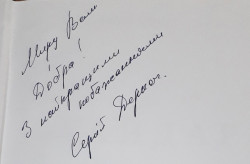 Миру Вам
Добра!
З найкращими
побажаннями
Сергій